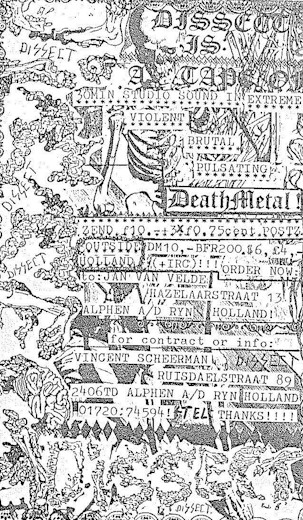 DISSECT
DISSECT
IS
A TAPE O
20MIN STUDIO SOUND IN EXTREME
VIOLENT
BRUTAL
PULSATING
DeathMetal !
SEND f10. 75cent.POSTZ
OUTSIDE DM10,-BFR200,$6,£4
HOLLAND (+IRC)!!! ORDER NOW:
to:JAN VAN VELDE
HAZELAARSTRAAT 13
ALPHEN A/D RYN HOLLAND!
for contract or info:
VINCENT SCHEERMAN DISSECT
RUISDAELSTRAAT 89
2406TD ALPHEN A/D RYN HOLLAND
01720:74594! TEL THANKS!!!!
DISSECT
DISSECT
DISSECT